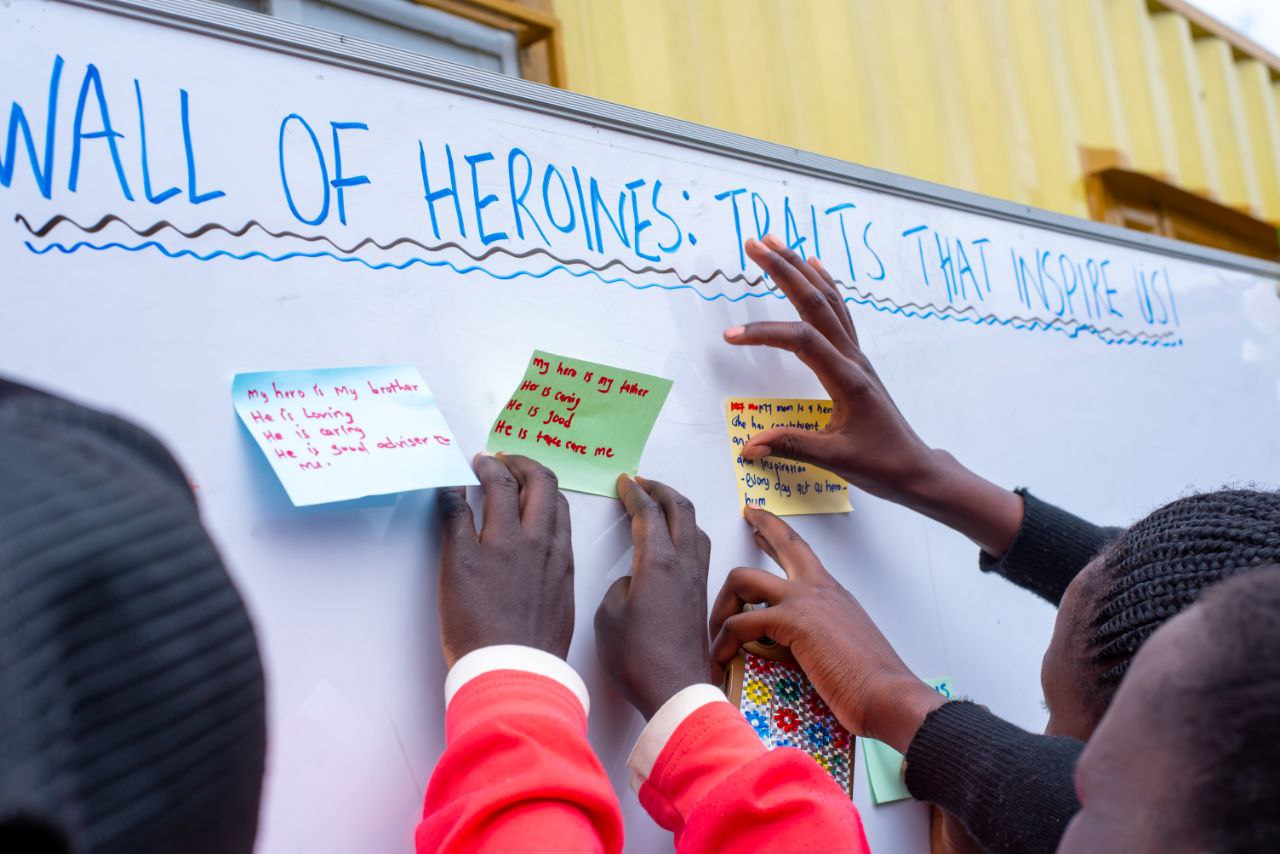 WALL OF HEROINES: TRAITS THAT INSPIRE US!
my hero is My brother
He is Loving
He is caring
He is good adviser to
me.
my hero is my father
Her is caring
He is good
He is take care me
My mom is a her
She has
an
and inspiration
-every day act as hero-
hum
us